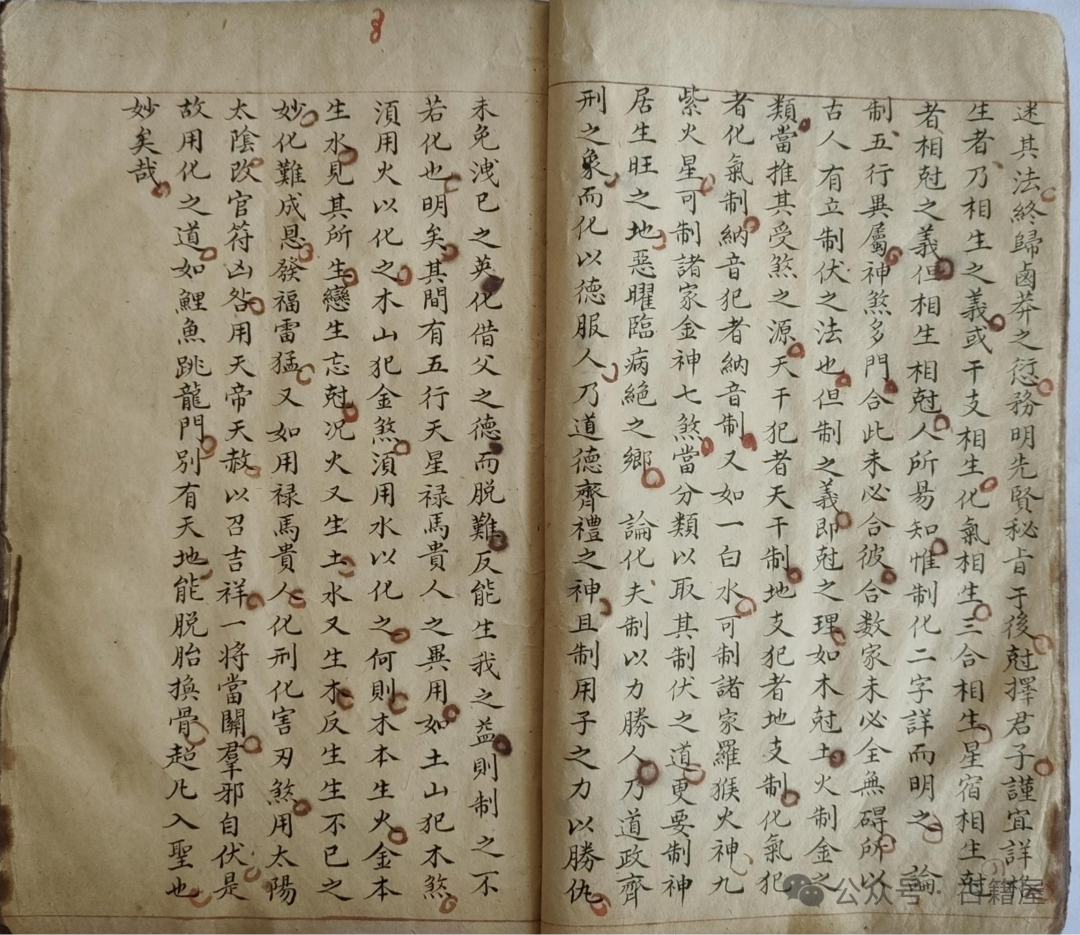 迷其法終歸鹵莽之愆務明先賢秘旨于後尅擇君子謹宜詳
生者乃相生之義或干支相生化氣相生三合相生星宿相生尅
者相尅之義但相生相尅人所易知惟制化二字詳而明之 論
制五行異屬神煞多門合此未必合彼合数家未必全無碍所以
古人有立制伏之法也但制之義即尅之理如木尅土火制金之
類當推其受煞之源天干犯者天干制地支犯者地支制化氣犯
者化氣制納音犯者納音制又如一白水可制諸家羅猴火神九
紫火星可制諸家金神七煞當分類以取其制伏之道更要制神
居生旺之地惡曜臨病絶之鄉 論化夫制以力勝人乃道政齊
刑之象而化以德服人乃道德齊禮之神且制用子之力以勝仇
未免洩已之英化借父之德而脱難反能生我之益則制之不
若化也明矣其間有五行天星禄馬貴人之異用如土山犯木煞
須用火以化之木山犯金煞須用水以化之何則木本生火金本
生水見其所生戀生忘尅况火又生土水又生木反生生不已之
妙化難成恩發福雷猛又如用禄馬貴人化刑化害刃煞用太陽
太陰改官符凶咎用天帝天赦以召吉祥一将當關羣邪自伏是
故用化之道如鯉魚跳龍門別有天地能脱胎換骨超凡入聖也
妙矣哉
公众号·古籍屋